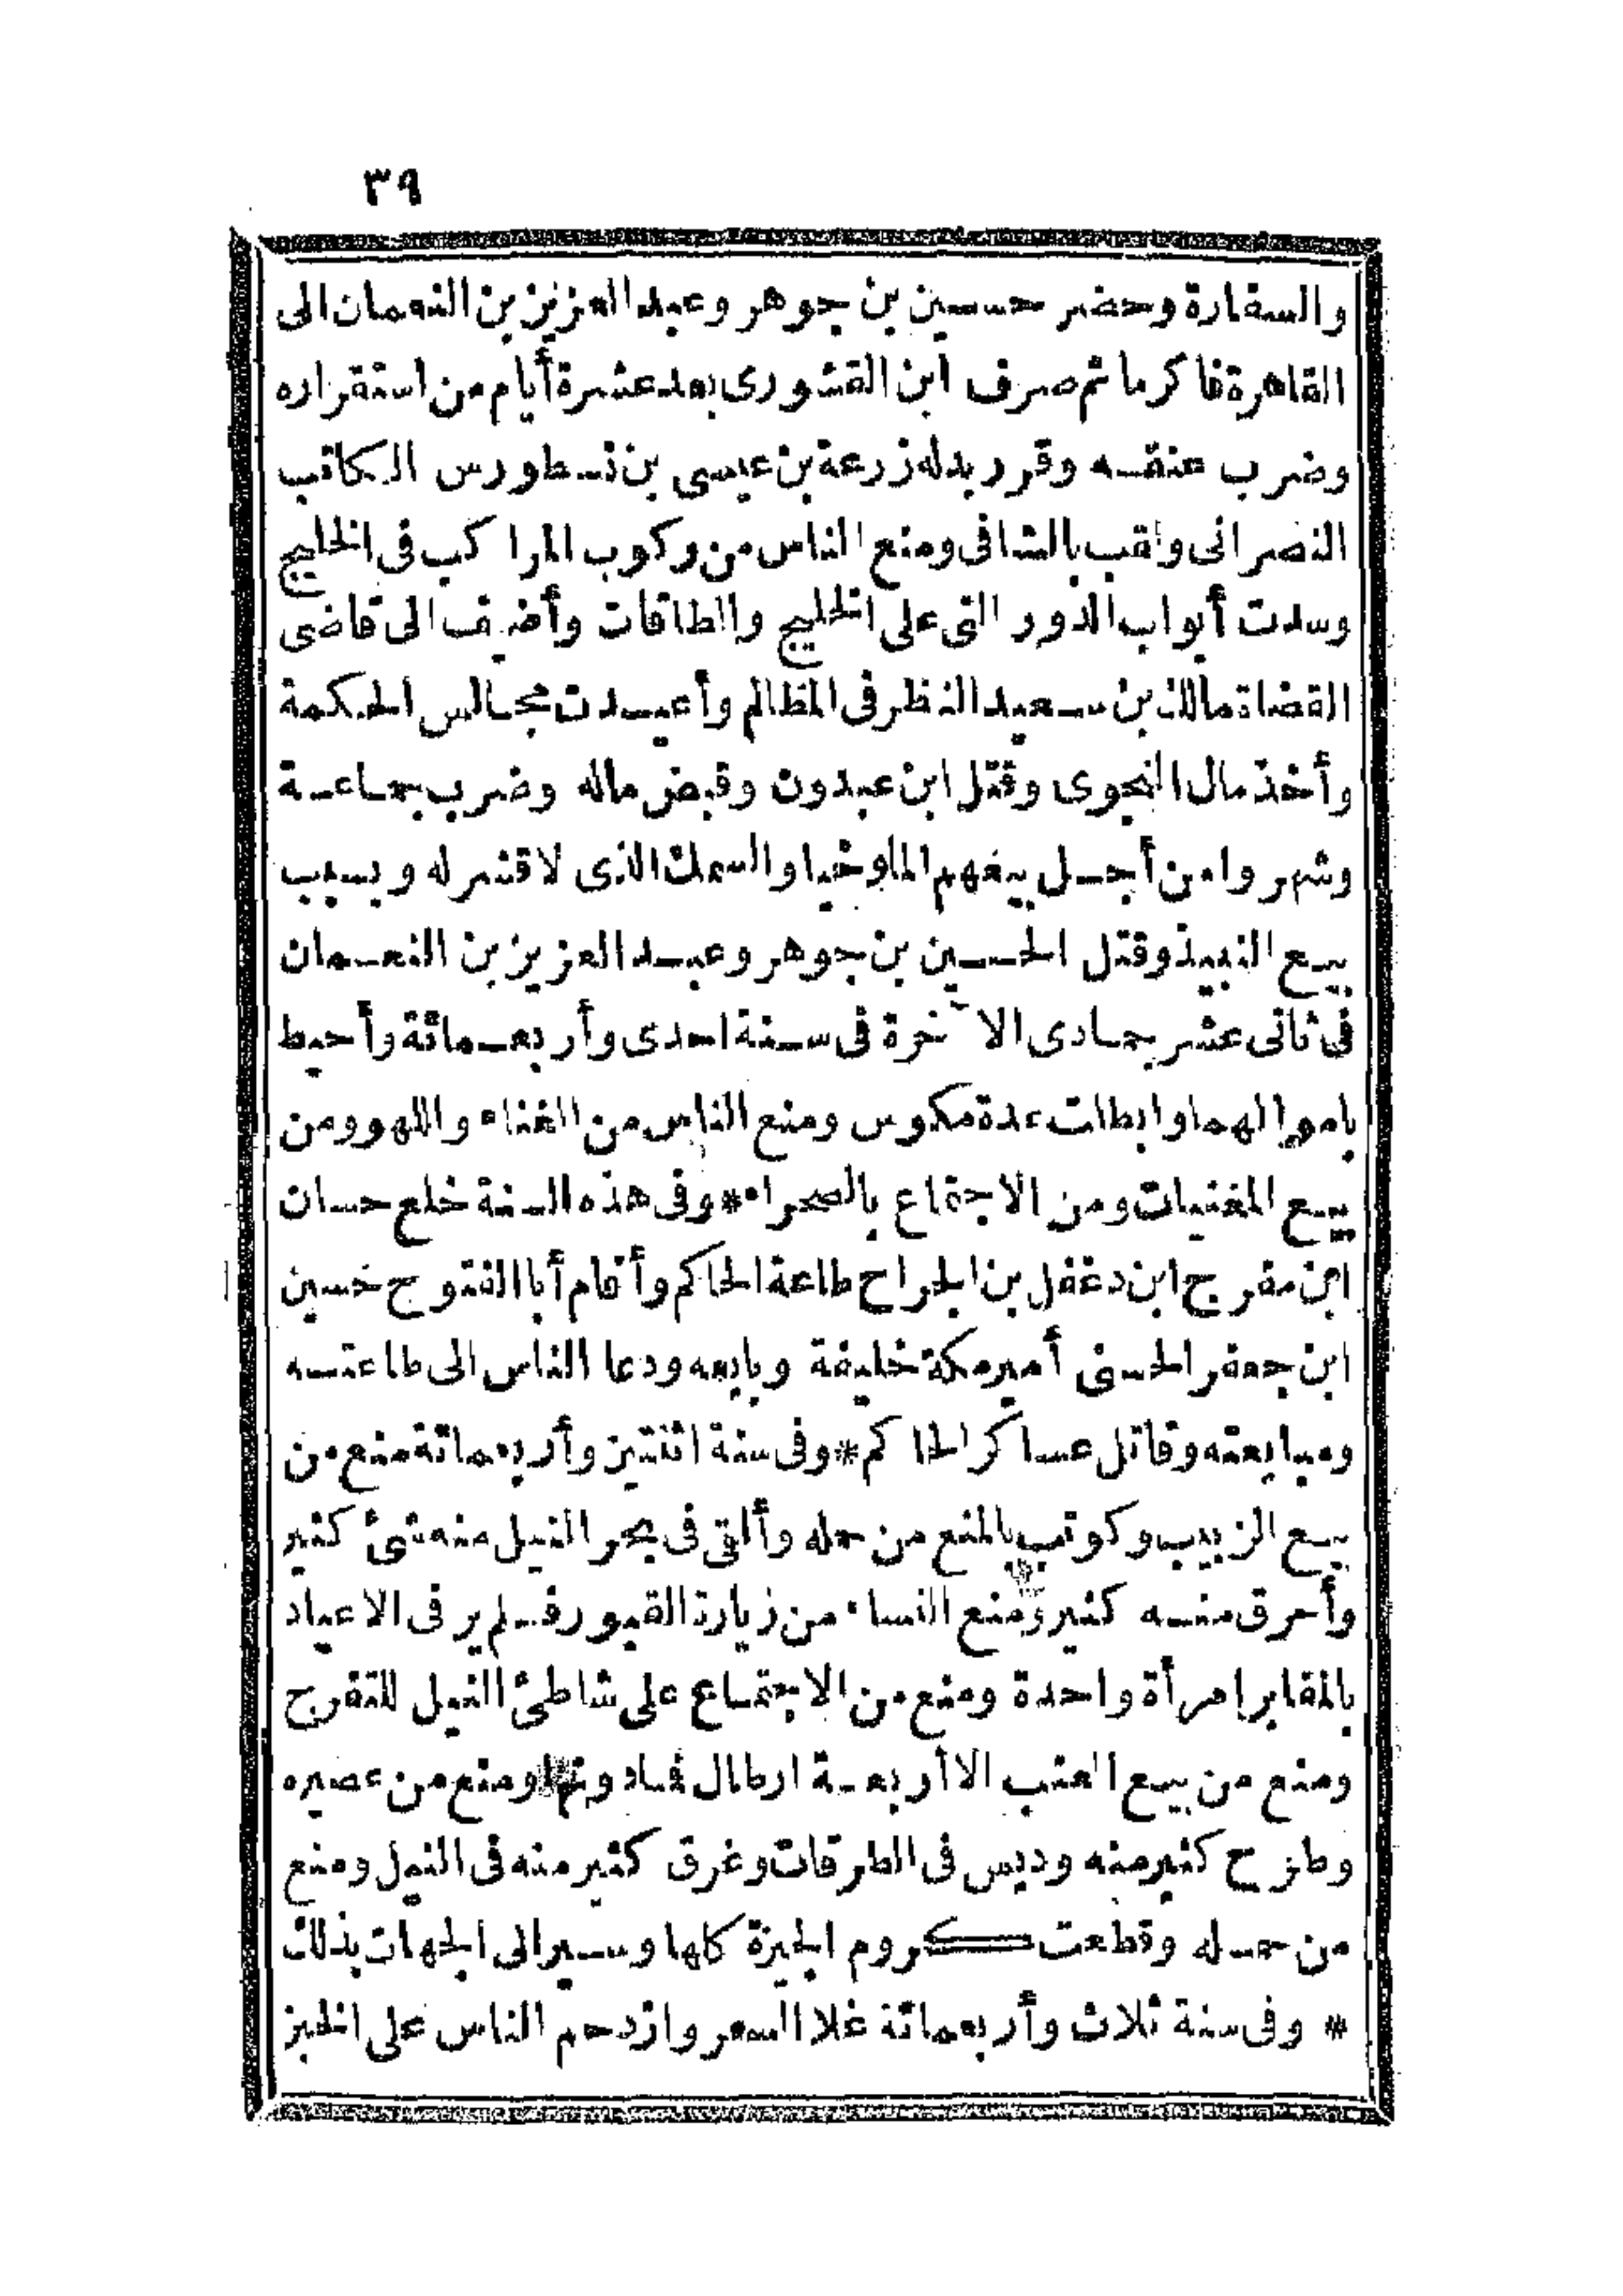 ٣٩
والسفارة وحضر حسين بن جوهر وعبد العزيز بن النعمان الى
القاهرة فاكرما ثم صرف ابن القشورى بعد عشرة أيام من استقراره
وضرب عنقه وقرر بدله زرعة بن عيسى بن نسطورس الكاتب
النصرانى ولقب بالشافى ومنع الناس من ركوب المراكب فى الخليج
وسدت أبواب الدور التى على الخليج والطاقات وأضيف الى قاضى
القضاة مالك بن سعيد النظر فى المظالم وأعيدت مجالس الحكمة
وأخذ مال النجوى وقتل ابن عبدون وقبض ماله وضرب جماعة
وشهروا من أجل بيعهم الملوخيا والسمك الذى لا قشر له وبسبب
بيع النبيذ وقتل الحسين بن جوهر وعبد العزيز بن النعمان
فى ثانى عشر جمادى الآخرة فى سنة احدى وأربعمائة وأحيط
باموالهما وابطلت عدة مكوس ومنع الناس من الغناء واللهو ومن
بيع المغنيات ومن الاجتماع بالصحراء * وفى هذه السنة خلع حسان
ابن مفرج ابن دغفل بن الجراح طاعة الحاكم وأقام أبا الفتوح حسين
ابن جعفر الحسنى أمير مكة خليفة وبايعه ودعا الناس الى طاعته
ومبايعته وقاتل عساكر الحاكم * وفى سنة اثنتين وأربعمائة منع من
بيع الزبيب وكوتب بالمنع من حمله وألقى فى بحر النيل منه شئ كثير
وأحرق منه كثير ومنع النساء من زيارة القبور فلم ير فى الاعياد
بالمقابر إمرأة واحدة ومنع من الاجتماع على شاطئ النيل للتفرج
ومنع من بيع العنب الا أربعة ارطال فادونها ومنع من عصيره
وطرح كثير منه وديس فى الطرقات وغرق كثير منه فى النيل ومنع
من حمله وقطعت كروم الجيزة كلها وسير الى الجهات بذلك
* وفى سنة ثلاث وأربعمائة غلا السعر وازدحم الناس على الخبز